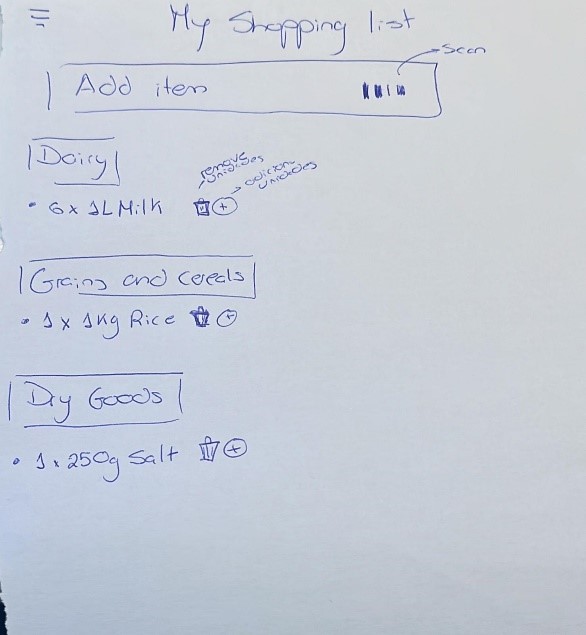 My Shopping list
Scan
Add item
Dairy
remove
unidades
adicion
unidades
• 6x 1L Milk
Grains and cereals
• 1 x 1Kg Rice
Dry Goods
• 1 x 250g Salt